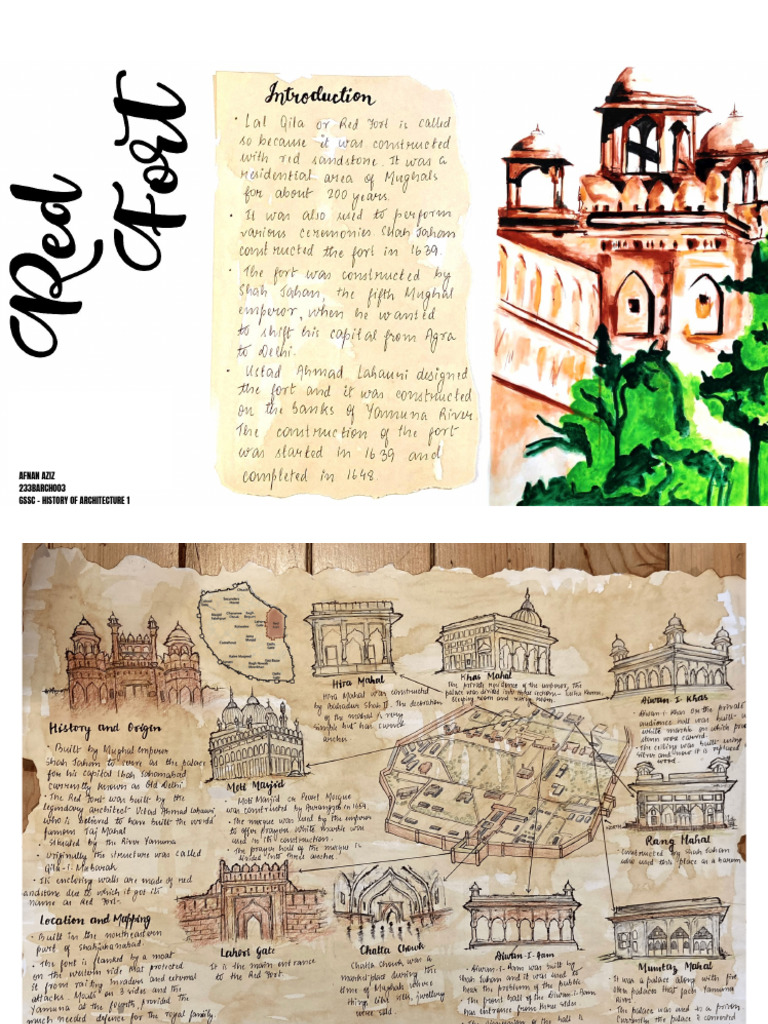 Red
Fort
AFNAN AZIZ
233BARCH003
GSSC - HISTORY OF ARCHITECTURE 1
Introduction
• Lal Qila or Red Fort is called
so because it was constructed
with red sandstone. It was a
residential area of Mughals
for about 200 years.
• It was also used to perform
various ceremonies. Shah Jahan
constructed the fort in 1639.
• The fort was constructed by
Shah Jahan, the fifth Mughal
emperor, when he wanted
to shift his capital from Agra
to Delhi.
• Ustad Ahmad Lahauri designed
the fort and it was constructed
on the banks of Yamuna River
The construction of the fort
was started in 1639 and
completed in 1648.
History and Origin
• Built by Mughal emperor
Shah Jahan to serve as the palace
for his capital Shah Jahanabad
currently known as Old Delhi
• The Red Fort was built by the
legendary architect Ustad Ahmad Lahauri
who is believed to have built the world
famous Taj Mahal
by the River Yamuna
• Originally the structure was called
Qila-i-Mubarak
• Its enclosing walls are made of red
sandstone due to which it got its
name as Red Fort.
Location and Mapping
• Built in the northeastern
part of Shahjahanabad.
• The fort is flanked by a moat
on the western side that protected
it from raiding invaders and external
attacks. Moats on 3 sides and the
Yamuna at the fourth, provided the
much needed defence for the royal family.
Hira Mahal
Hira Mahal was constructed
by Bahadur Shah II. The decoration
of the mahal is very
simple but has curved
arches
Khas Mahal
The private residence of the emperor, the
palace was divided into three sections - Tasbih Khana,
sleeping room and
Aiwan-I-Khas
Aiwan-i-Khas or the private
audience hall was built
white marble on which
stones were carved.
• The ceiling was built using
silver and now it is replaced
wood.
Moti Masjid
Moti Masjid or Pearl Mosque
was constructed by Aurangzeb in 1659.
• The mosque was used by the emperor
to offer prayers. White marble was
used in its construction.
• The prayer hall of the mosque is
divided into three arches.
Rang Mahal
• Constructed by Shah Jahan
who used this place as a harem
Lahori Gate
It is the main entrance
to the Red Fort.
Chatta Chowk
Chatta Chowk was a
market place during the
time of Mughals where
things like silk, jewellery
were sold.
Aiwan-I-Aam
• Aiwan-i-Aam was built by
Shah Jahan and it was used to
hear the problems of the public
• The front hall of the Aiwan-i-Aam
has entrance from three sides
of the hall is
Mumtaz Mahal
It was a palace along with five
palaces that face Yamuna
River.
• The palace was used as a prison
Currently the palace is converted